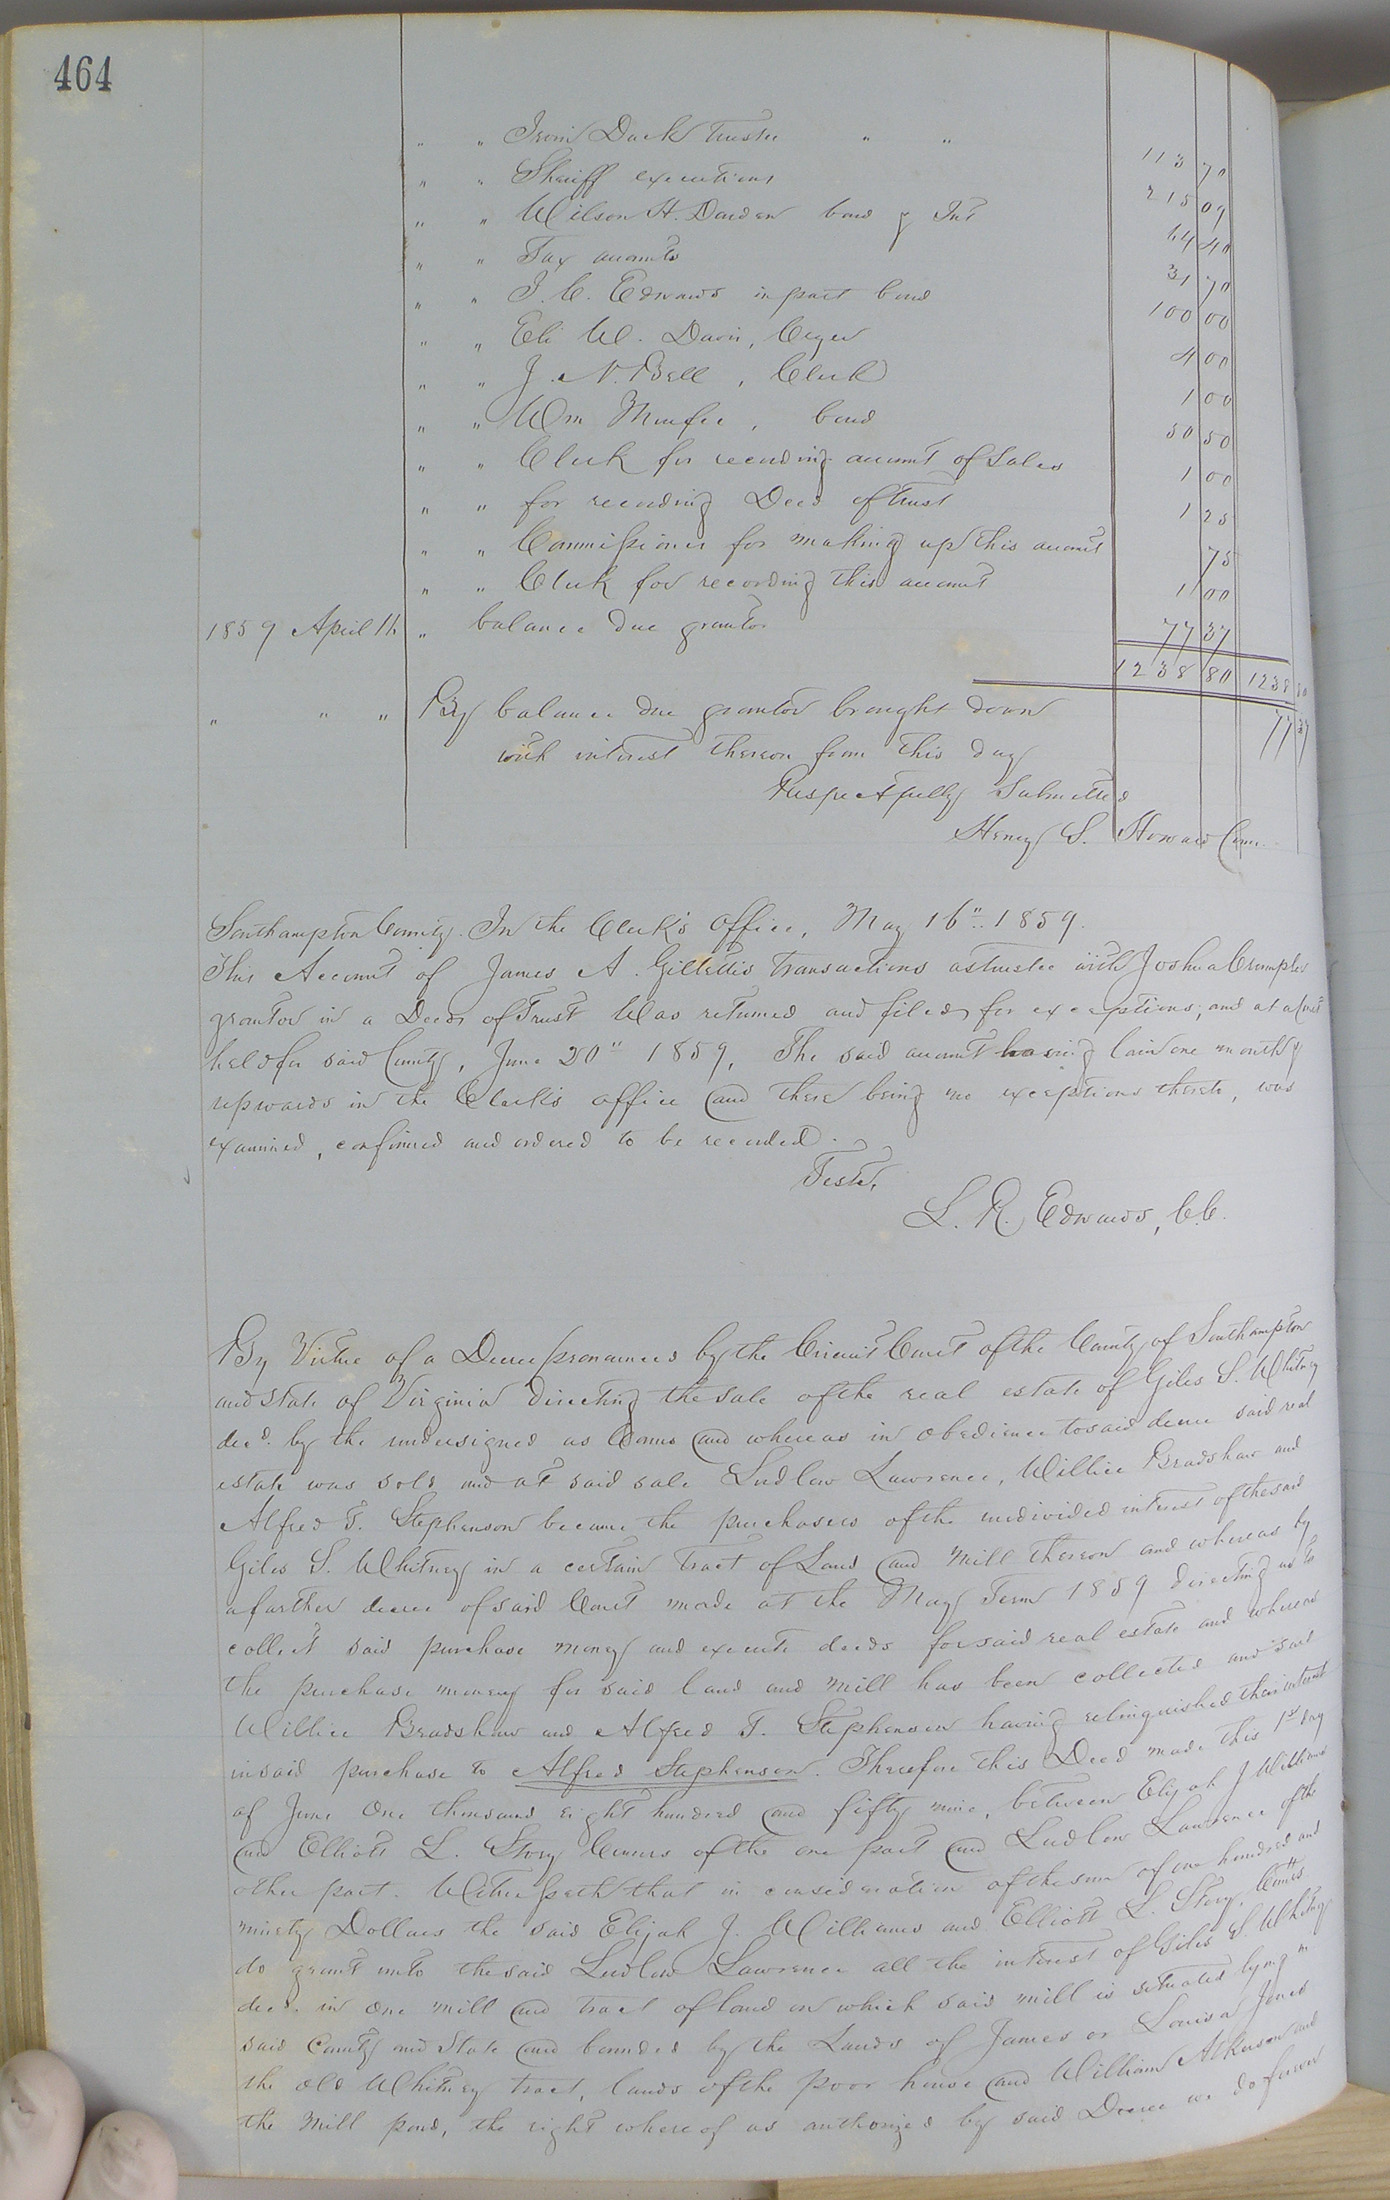 464
" " Irvin Duck trustee " " 113 70
" " Sheriff executions 215 09
" " Wilson H. Darden bond & Int 64 40
" " Tax accounts 31 70
" " J. C. Edwards in part bond 100 00
" " Eli W. Davis, Cryer 4 00
" " J. N. Bell, Clerk 1 00
" " Wm Murfee, bond 50 50
" " Clerk for recording account of Sales 1 00
" " for recording Deed of Trust 1 25
" " Commissioner for making up this account 75
" " Clerk for recording this account 1 00
1859 April 16 " balance due grantor 77 37
1238 80 1238 80
" " " By balance due grantor brought down 77 37
with interest thereon from this day
Respectfully Submitted
Henry S. Howard Com.
Southampton County. In the Clerk's Office, May 16" 1859.
This Account of James A. Gillette's transactions as trustee with Joshua Crumpler
grantor in a Deed of Trust Was returned and filed for exceptions; and at a Court
held for said County, June 20" 1859, The said account having lain one month &
upwards in the Clerk's office and there being no exceptions thereto, was
examined, confirmed and ordered to be recorded.
Teste,
L. R. Edwards, C.C.
By Virtue of a Decree pronounced by the Circuit Court of the County of Southampton
and state of Virginia directing the sale of the real estate of Giles S. Whitney
decd. by the undersigned as Comrs and whereas in obedience to said decree said real
estate was sold and at said sale Ludlow Lawrence, Willie Bradshaw and
Alfred T. Stephenson became the purchasers of the undivided interest of the said
Giles S. Whitney in a certain tract of Land and Mill thereon and whereas by
a further decree of said Court made at the May Term 1859 directing us to
collect said purchase money and execute deeds for said real estate and whereas
the purchase money for said land and mill has been collected and said
Willie Bradshaw and Alfred T. Stephenson having relinquished their interest
in said purchase to Alfred Stephenson. Therefore this Deed made this 1st day
of June One thousand eight hundred and fifty nine, between Elijah J Williams
and Elliott L. Story Comrs of the one part and Ludlow Lawrence of the
other part. Witnesseth that in consideration of the sum of one hundred and
ninety Dollars the said Elijah J. Williams and Elliott L. Story,
do grant unto the said Ludlow Lawrence all the interest of Giles S. Whitney
decd. in one mill and tract of land on which said mill is situated lying in
said County and State and bounded by the Lands of James or Louisa Jones
the old Whitney tract, lands of the poor house and William Atkinson and
the Mill pond, the right whereof as authorized by said Decree we do forever